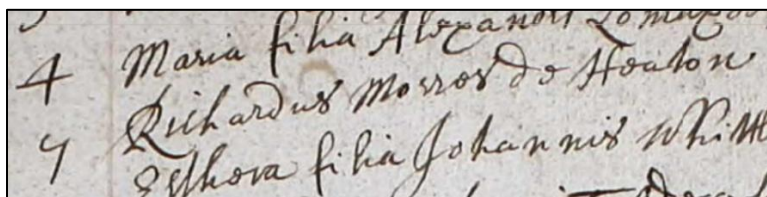 4 Maria filia Alexandri Lomax de
Richardus Morres de Heaton
7 Esthera filia Johannis Whittle